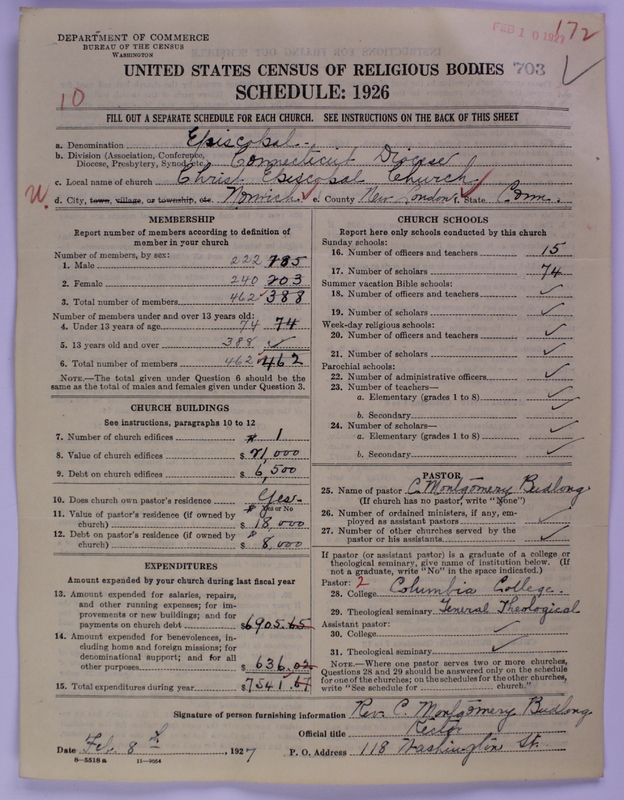 DEPARTMENT OF COMMERCE
BUREAU OF THE CENSUS
WASHINGTON
FEB 10 1927
172
UNITED STATES CENSUS OF RELIGIOUS BODIES 703
SCHEDULE: 1926
10
FILL OUT A SEPARATE SCHEDULE FOR EACH CHURCH. SEE INSTRUCTIONS ON THE BACK OF THIS SHEET
a. Denomination Episcopal
b. Division (Association, Conference, Diocese, Presbytery, Synod, etc.) Connecticut Diocese
c. Local name of church Christ Episcopal Church
d. City, town, village, or township, etc. Norwich e. County New London f. State Conn.
MEMBERSHIP
Report number of members according to definition of
member in your church
Number of members, by sex:
1. Male 222 185
2. Female 240 203
3. Total number of members 462 388
Number of members under and over 13 years old:
4. Under 13 years of age 74 74
5. 13 years old and over 388 ✓
6. Total number of members 462 462
NOTE.—The total given under Question 6 should be
same as the total of males and females given under Question 3.
CHURCH BUILDINGS
See instructions, paragraphs 10 to 12
7. Number of church edifices 1
8. Value of church edifices $ 71,000
9. Debt on church edifices $ 6,500
10. Does church own pastor's residence Yes
Yes or No
11. Value of pastor's residence (if owned by
church) $ 18,000
12. Debt on pastor's residence (if owned by
church) $ 8,000
EXPENDITURES
Amount expended by your church during last fiscal year
13. Amount expended for salaries, repairs,
and other running expenses; for im-
provements or new buildings; and for
payments on church debt $6905.65
14. Amount expended for benevolences, in-
cluding home and foreign missions; for
denominational support; and for all
other purposes $ 636.02
15. Total expenditures during year $7541.67
CHURCH SCHOOLS
Report here only schools conducted by this church
Sunday schools:
16. Number of officers and teachers 15
17. Number of scholars 74
Summer vacation Bible schools:
18. Number of officers and teachers ✓
19. Number of scholars ✓
Week-day religious schools:
20. Number of officers and teachers ✓
21. Number of scholars ✓
Parochial schools:
22. Number of administrative officers ✓
23. Number of teachers—
a. Elementary (grades 1 to 8) ✓
b. Secondary ✓
24. Number of scholars—
a. Elementary (grades 1 to 8) ✓
b. Secondary ✓
PASTOR
25. Name of pastor C. Montgomery Budlong
(If church has no pastor, write "None")
26. Number of ordained ministers, if any, em-
ployed as assistant pastors ✓
27. Number of other churches served by the
pastor or his assistants ✓
If pastor (or assistant pastor) is a graduate of a college or
theological seminary, give name of institution below. (If
not a graduate, write "No" in the space indicated.)
Pastor: 2
28. College Columbia College.
29. Theological seminary General Theological
Assistant pastor:
30. College ✓
31. Theological seminary ✓
NOTE.—Where one pastor serves two or more churches,
Questions 28 and 29 should be answered only on the schedule
for one of the churches; on the schedules for the other churches,
write "See schedule for church."
Signature of person furnishing information Rev. C. Montgomery Budlong
Official title Rector
Date Feb. 8 1927 P. O. Address 118 Washington St.
8—5518 a 11—9054